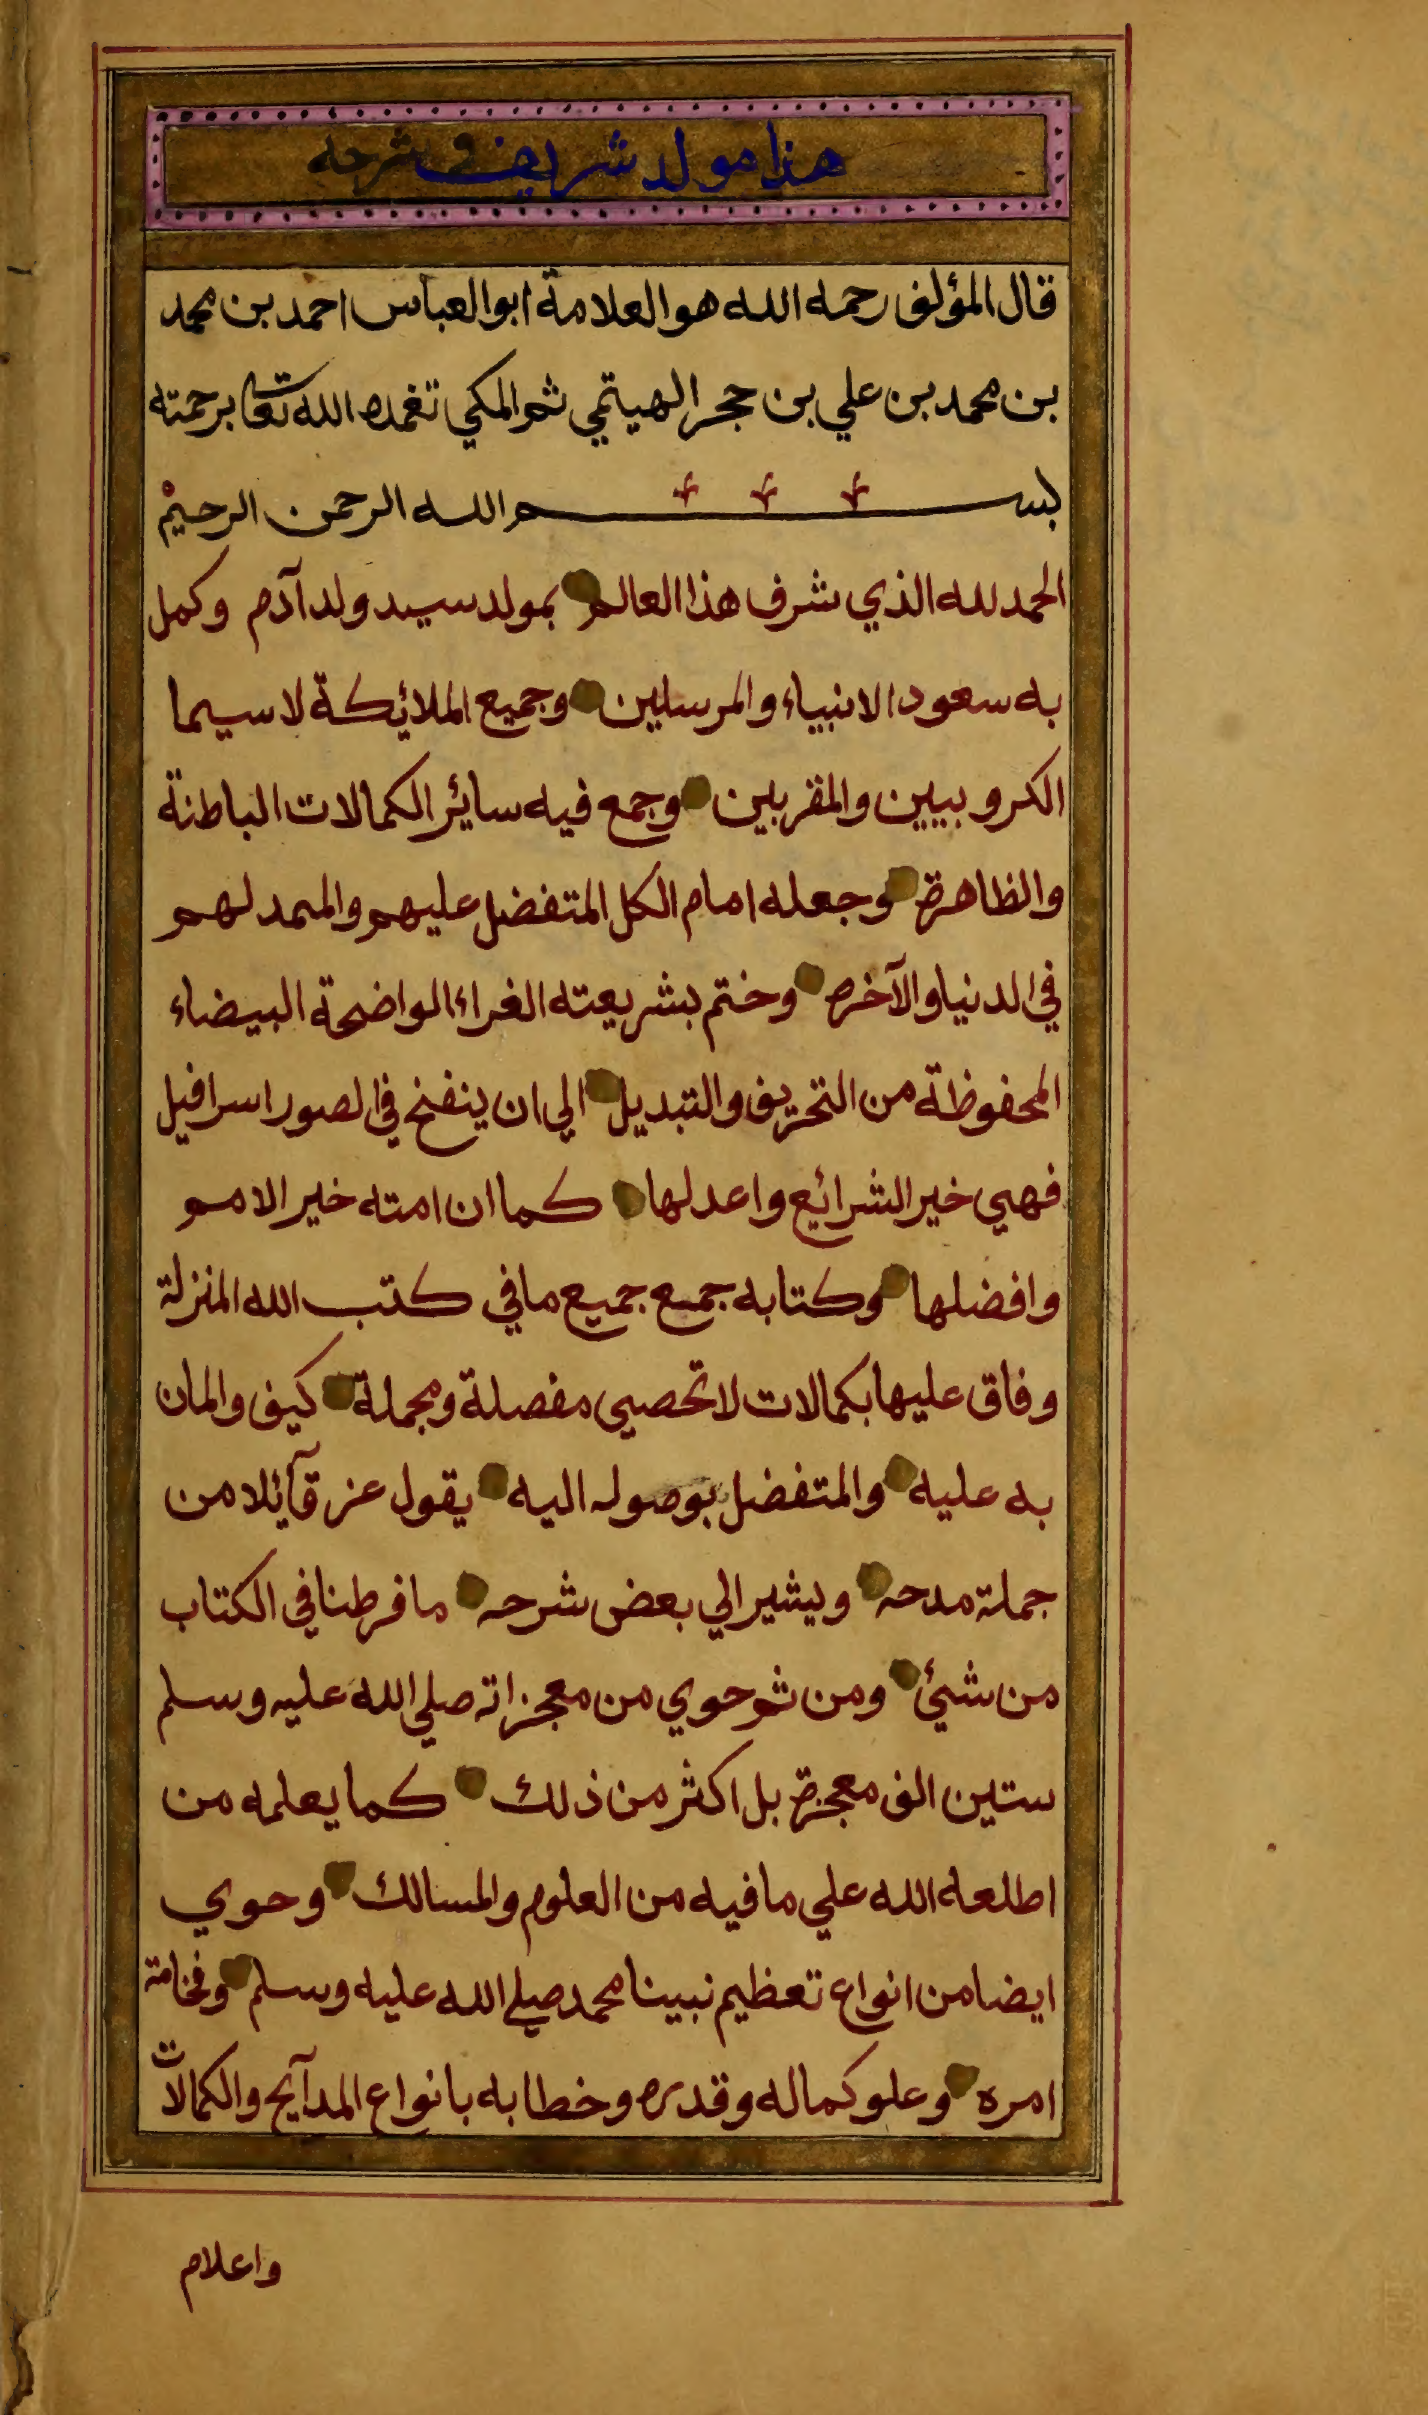 هذا مولد شريف في شرحه
قال المؤلف رحمه الله هو العلامة ابو العباس احمد بن محمد
بن محمد بن علي بن حجر الهيتمي ثم المكي تغمده الله تعا برحمته
بسم الله الرحمن الرحيم
الحمد لله الذي شرف هذا العالم بمولد سيد ولد آدم وكمل
به سعود الانبياء والمرسلين وجميع الملائكة لا سيما
الكروبيين والمقربين وجمع فيه سائر الكمالات الباطنة
والظاهرة وجعله امام الكل المتفضل عليهم والممد لهم
في الدنيا والآخره وختم بشريعته الغراء الواضحة البيضاء
المحفوظة من التحريف والتبديل الي ان ينفخ في الصور اسرافيل
فهي خير الشرائع واعدلها كما ان امته خير الامم
وافضلها وكتابه جمع جميع ما في كتب الله المنزلة
وفاق عليها بكمالات لا تحصي مفصلة ومجملة كيف والمان
به عليه والمتفضل بوصوله اليه يقول عز قآئلا من
جملة مدحه ويشير الي بعض شرحه ما فرطنا في الكتاب
من شيئ ومن ثم حوي من معجزاته صلي الله عليه وسلم
ستين الف معجزة بل اكثر من ذلك كما يعلمه من
اطلعه الله علي ما فيه من العلوم والمسالك وحوي
ايضا من انواع تعظيم نبينا محمد صلي الله عليه وسلم وفخامة
امره وعلو كماله وقدره وخطابه بانواع المدآيح والكمالات
واعلام